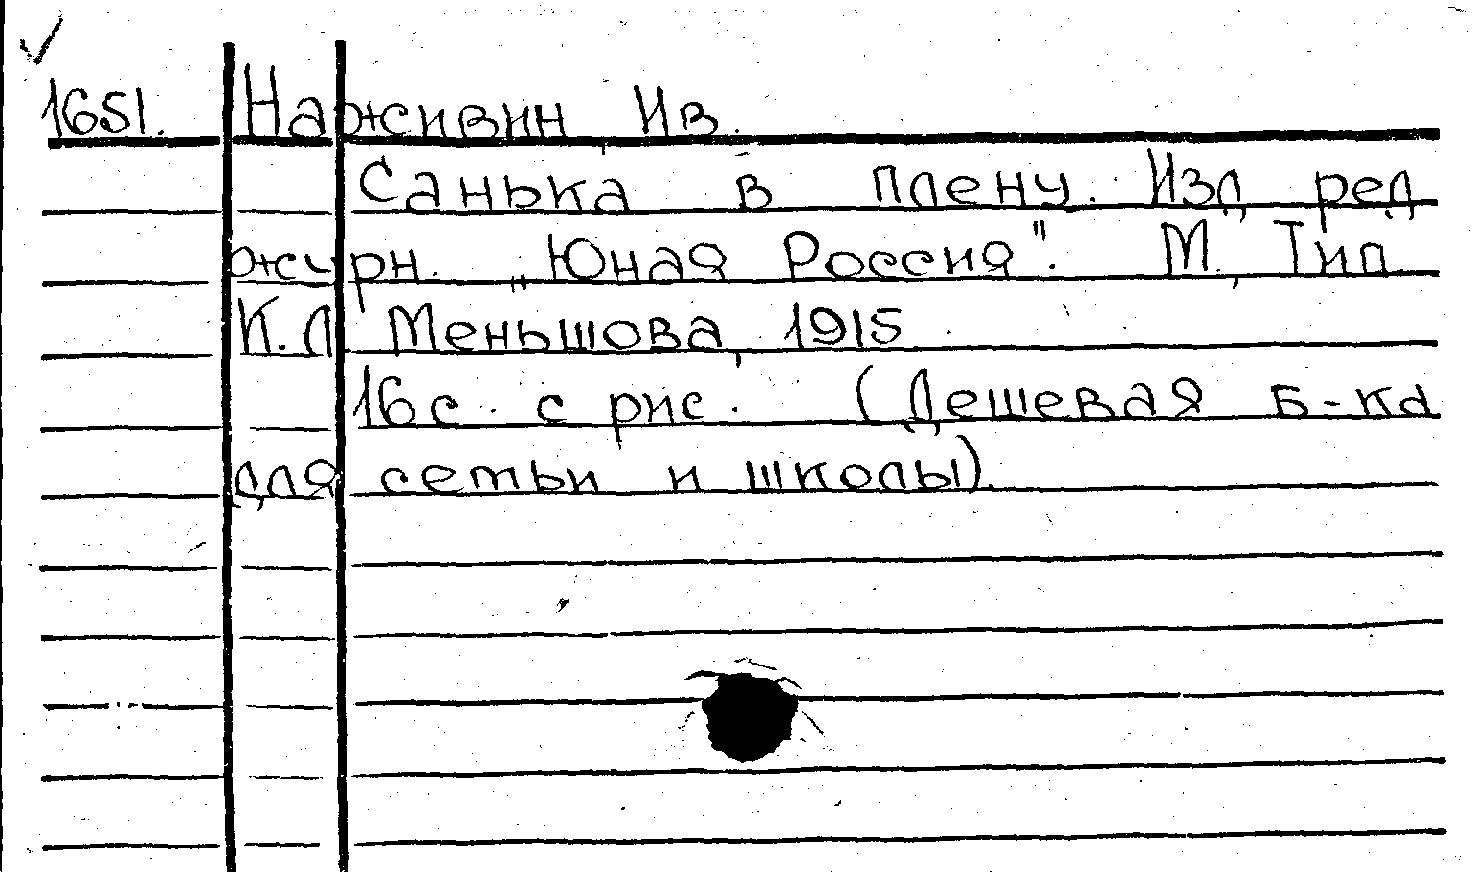 1651. Наживин Ив.
Санька в плену. Изд. ред.
журн. „Юная Россия". М., Тип.
К.Л. Меньшова, 1915
16с. с рис. (Дешевая б-ка
для семьи и школы).